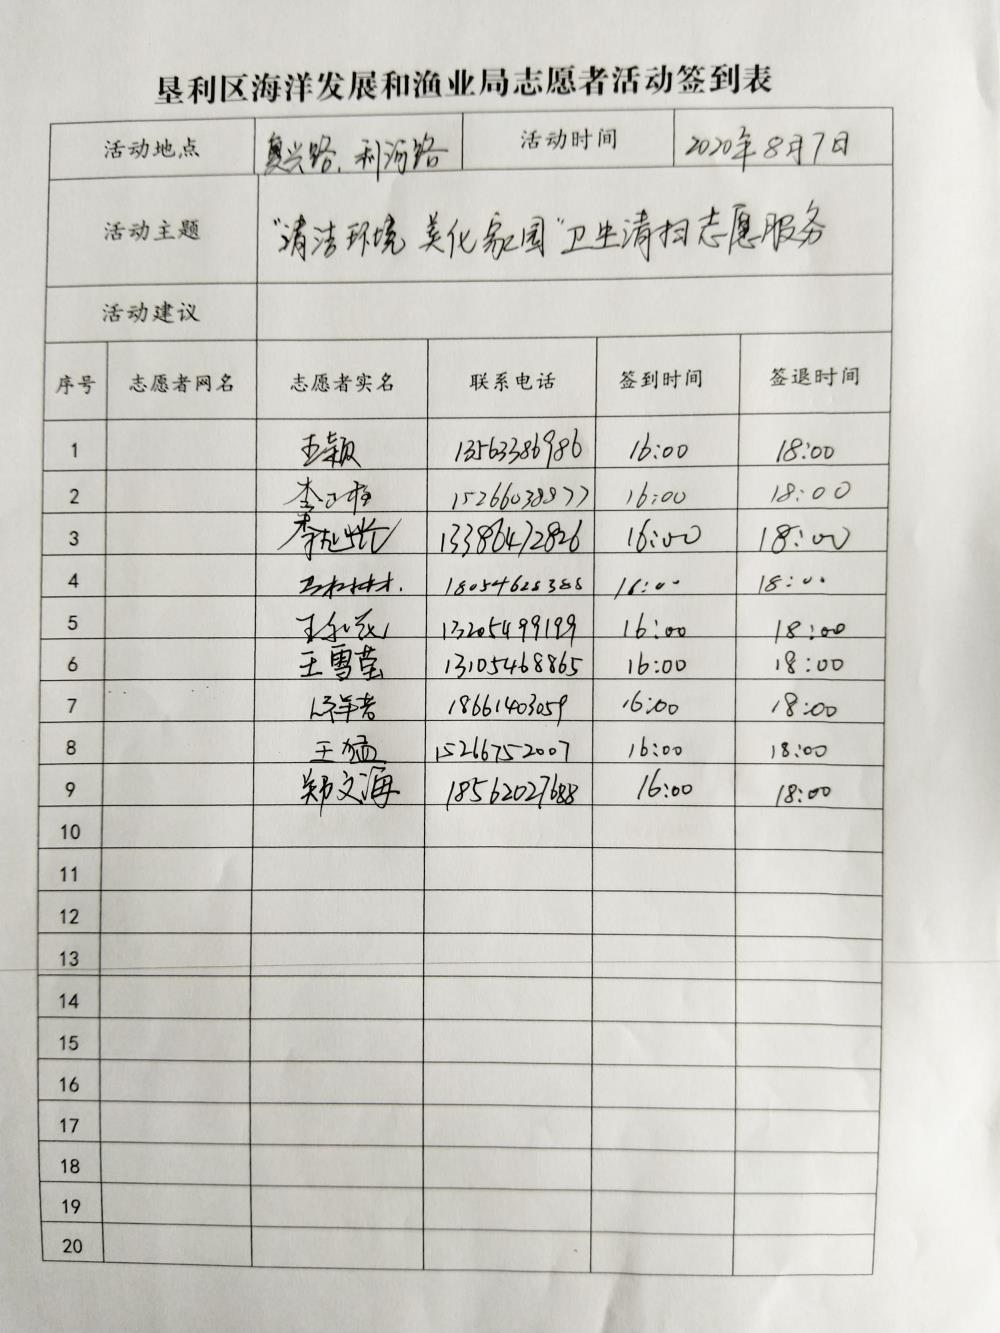 垦利区海洋发展和渔业局志愿者活动签到表
活动地点 复兴路、利河路 活动时间 2020年8月7日
活动主题 "清洁环境 美化家园"卫生清扫志愿服务
活动建议
序号 志愿者网名 志愿者实名 联系电话 签到时间 签退时间
1 王颖 13563386986 16:00 18:00
2 15266038877 16:00 18:00
3 13386472826 16:00 18:00
4 18054628388 16:00 18:00
5 13205499199 16:00 18:00
6 王雪莹 13105468865 16:00 18:00
7 18661403059 16:00 18:00
8 王猛 15266752007 16:00 18:00
9 郑文海 18562027688 16:00 18:00
10
11
12
13
14
15
16
17
18
19
20